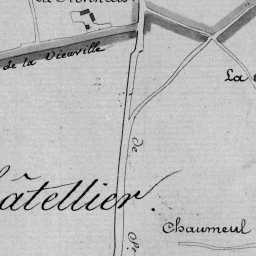 de la Vieuville
La
de
âtellier.
Chaumeul
St